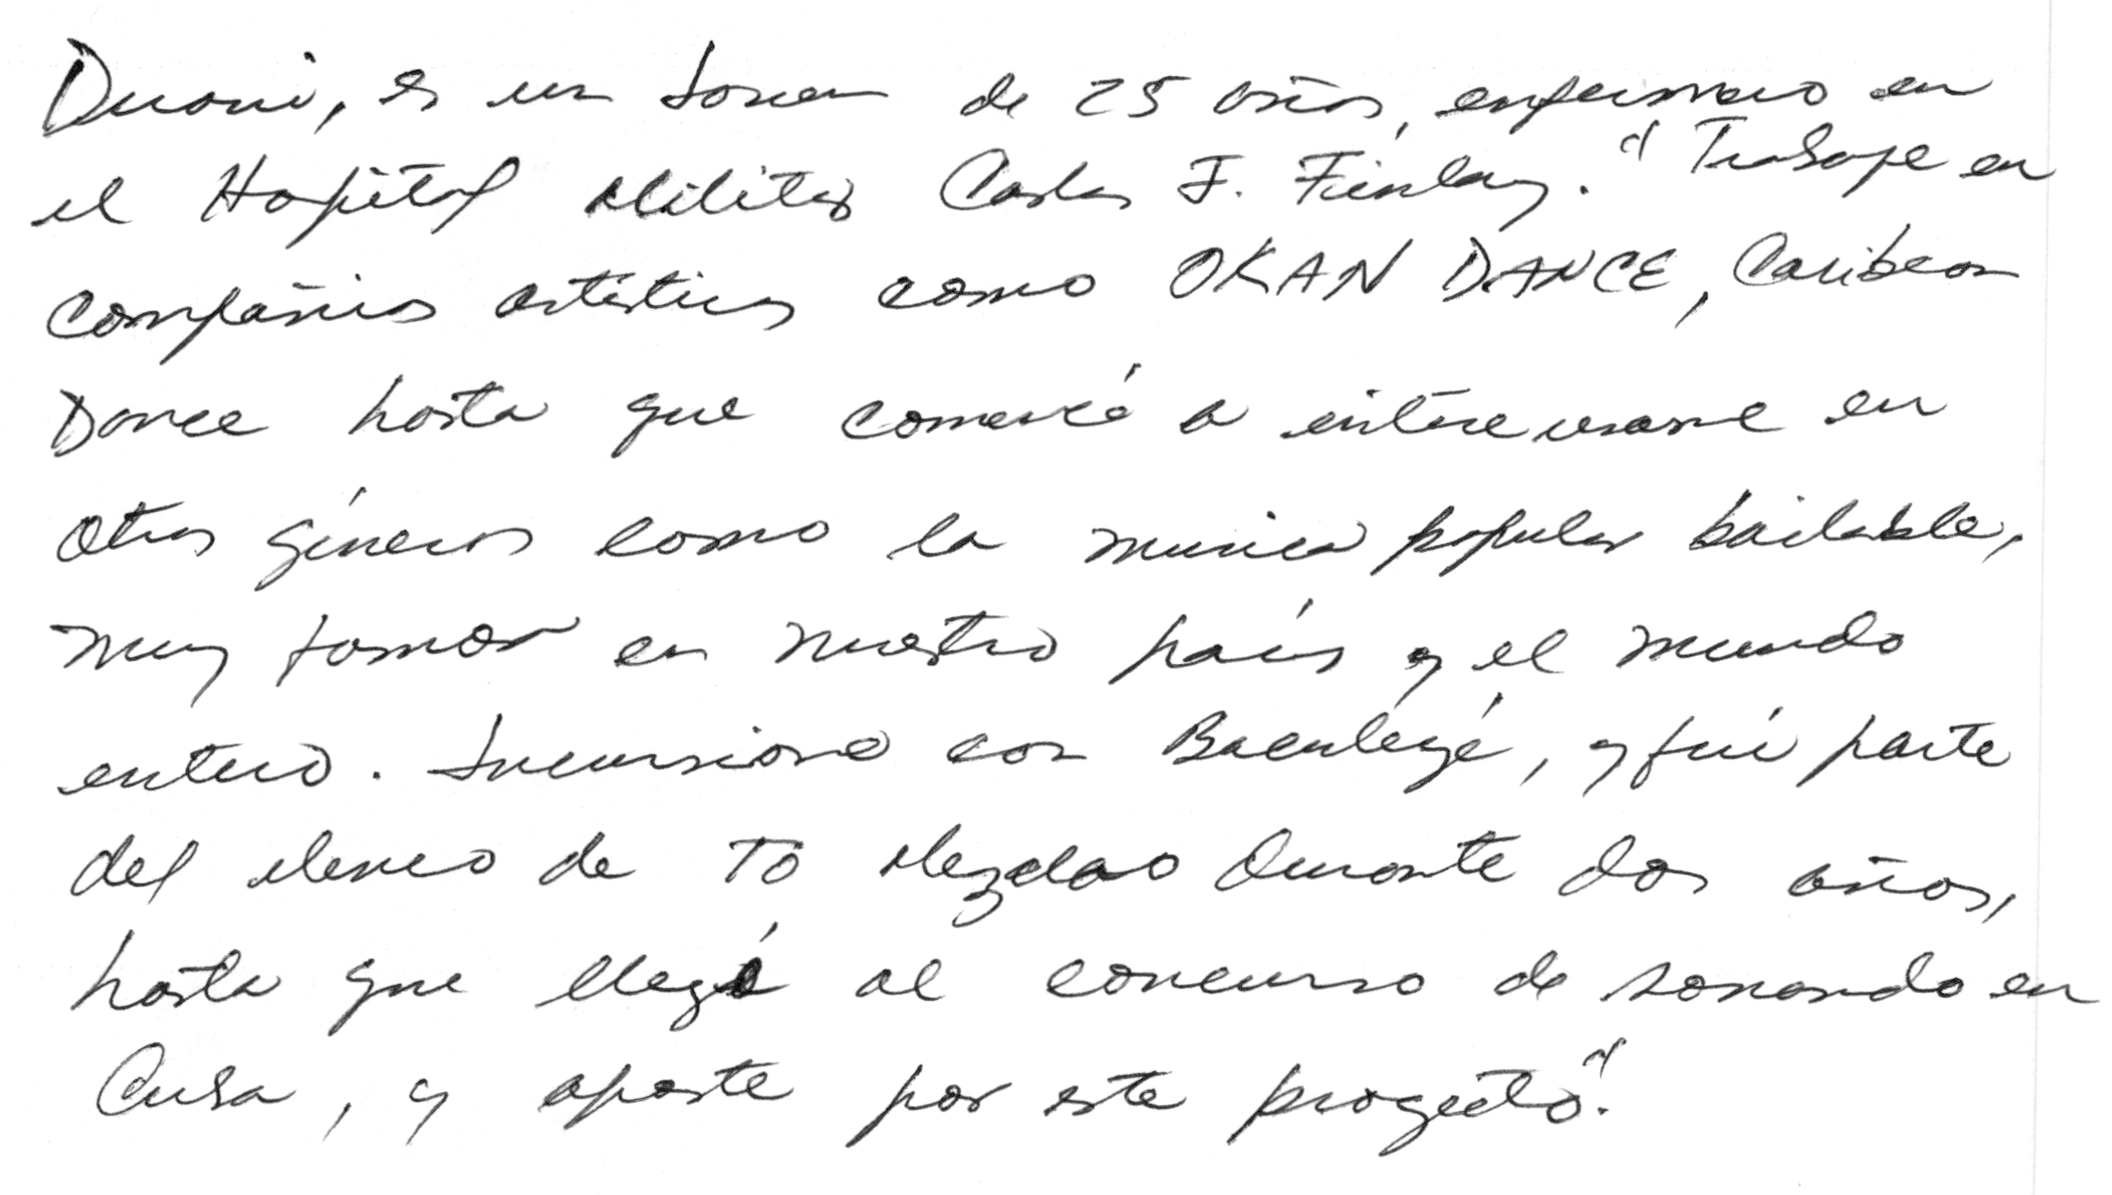 es un Joven de 25 años, enfermero en
el Hospital Militar Carlos J. Finlay. "Trabaje en
compañias artisticas como OKAN DANCE, Caribean
Dance hasta que comencé a interesarme en
otros géneros como la musica popular bailable,
muy famosa en nuestro país y el mundo
entero. Incursione con Baculeyé, y fuí parte
del elenco de To Mezclao durante dos años,
hasta que llegó al concurso de sonando en
Cuba, y aposte por este proyecto".